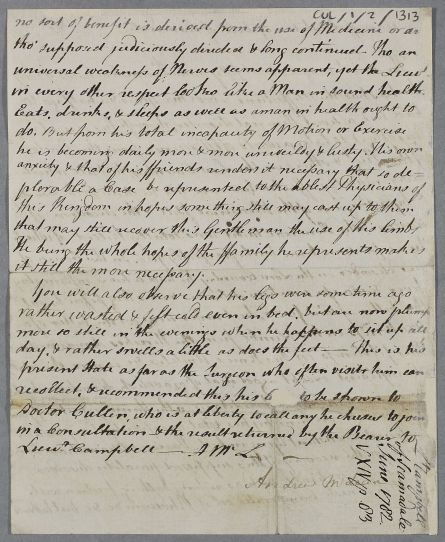 CUL/1/2/1313
no sort of benefit is derived from the use of Medicine or air
tho' supposed judiciously directed & long continued. Tho an
universal weakness of Nerves seems apparent, yet the Lieu.t
in every other respect looks like a Man in sound health
Eats, drinks, & sleeps as well as a man in health ought to
do. But from his total incapacity of Motion or Exercise
he is becoming daily more & more unwieldy & lusty. His own
anxiety & that of his ffriends renders it necessary that so de-
plorable a Case be represented to the ablest Physicians of
this Kingdom in hopes something still may cast up to them
that may still recover this Gentleman the use of his limbs
He being the whole hopes of the ffamily he represents makes
it still the more necessary.
You will also observe that his legs were some time ago
rather wasted & felt cold even in bed, but are now plump
more so still in the evenings when he happens to sit up all
day, & rather swells a little as does the feet — This is his
present State as far as the Surgeon who often visits him can
recollect, & recommended this his to be shown to
Doctor Cullen, who is at liberty to call any he chuses to join
in a Consultation & the result returned by the Bearer to
Lieu.t Campbell — A Mc L
Andrew
Campbell
Glamadale
June 1782